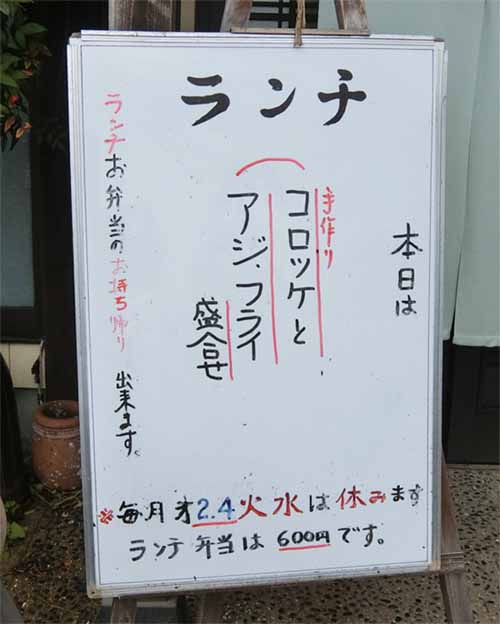 ランチ
本日は
手作り
コロッケと
アジ・フライ
盛合せ
ランチお弁当のお持ち帰り 出来ます。
※毎月才2.4火水は休みます
ランチ弁当は600円です。